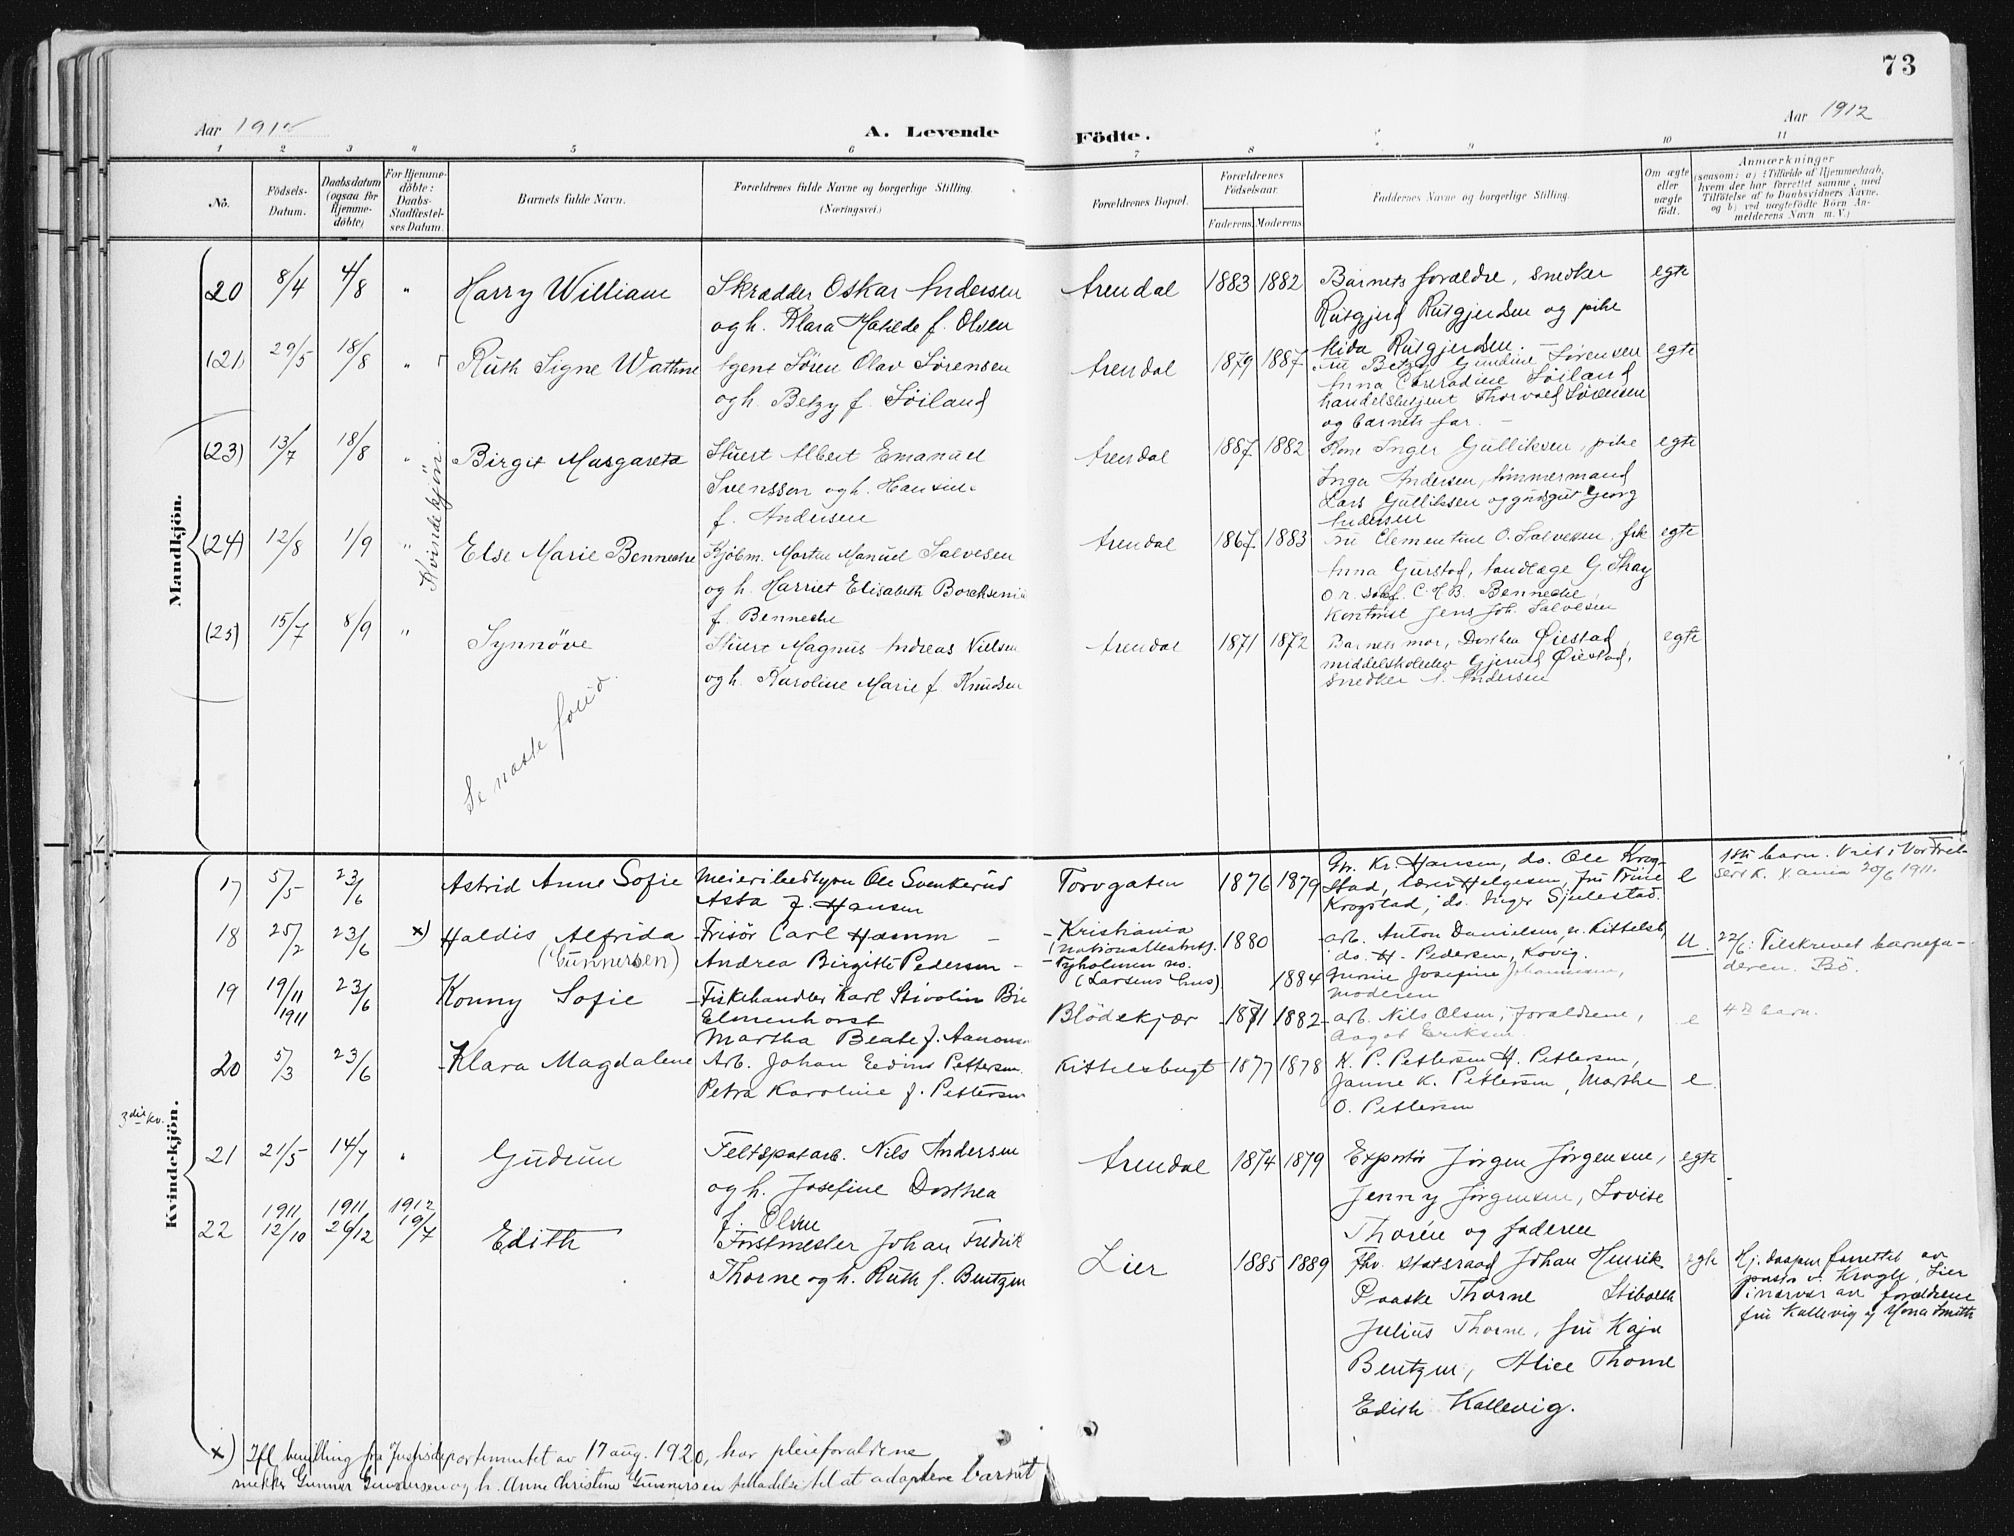 73
Aar 1912
A. Levende
Födte.
Aar 1912
1 2 3 4 5 6 7 8 9 10 11
No.
Födsels-
Datum.
Daabsdatum
(ogsaa for
Hjemme-
döbte)
For Hjemme-
döbte:
Daabs-
Stadfæstel-
ses Datum.
Barnets fulde Navn.
Forældrenes fulde Navne og borgerlige Stilling.
(Næringsvei.)
Forældrenes Bopæl.
Forældrenes
Födselsaar.
Faderens Moderens
Faddernes Navne og borgerlige Stilling.
Om ægte
eller
uægte
födt.
Anmærkninger
(saasom: a) i Tilfælde af Hjemmedaab,
hvem der har forrettet samme, med
Tilföielse af to Daabsvidners Navne,
og b) ved uægtefödte Börn An-
melderens Navn m. V.)
Mandkjön.
Kvindekjön.
20 8/4 4/8 " Harry William
Skrædder Oskar Andersen
og h. Klara Matilde f. Olsen
Arendal 1883 1882
Barnets forældre, snedker
Rutgjerd Rutgjerdsen og pike
Rutgjerdsen. –
egte
(21) 29/5 18/8 " Ruth Signe Wathne
Agent Sören Olav Sörensen
og h. Betzy f. Söiland
Arendal 1879 1887
Fru Betzy Gundine Sørensen
Anna Conradine Söiland
handelsbetjent Thorvald Sörensen
og barnets far. –
egte
(23) 13/7 18/8 " Birgit Margareta
Stuert Albert Emanuel
Svensson og h. Hansine
f. Andersen
Arendal 1887 1882
Kone Inger Gulliksen, pike
Inga Andersen, tömmermand
Lars Gulliksen og Georg
Andersen
egte
(24) 12/8 1/9 " Else Marie Benneche
Kjöbm. Morten Manuel Salvesen
og h. Harriet Elisabeth
f. Benneche
Arendal 1867 1883
Fru Clementine O. Salvesen, frk
Anna Gurstad, tandlæge G. Skay
C. H. B. Benneche,
kontorist Jens Joh. Salvesen
egte
(25) 15/7 8/9 " Synnöve
Stuert Magnus Andreas Nielsen
og h. Karoline Marie f. Knudsen
Arendal 1871 1872
Barnets mor, Dorthea Øiestad,
middelskoleelev Gjerud Øiestad,
snedker A. Andersen
egte
Kvindekjön.
Se næste folio.
17 5/5 23/6 Astrid Anne Sofie
Meieribestyrer Ole Svenkerud
Asta f. Hansen
Torvgaten 1876 1879
Gr. Kr. Hansen, do. Ole Krog-
stad, lærer Helgesen, fru Trine
Krogstad, do. Inger Sjulestad.
e
1ste barn. Viet i Vor Frel-
sers K. X ania 20/6 1911.
18 25/2 23/6 x) Haldis Alfrida
(Gunnersen)
Frisör Carl Hamm –
Andrea Birgitte Pedersen –
Kristiania
Tyholmen no.
(Larsens Enus)
1880
1884
arb. Anton Danielsen, n. Kittelsb,
do. H. Pedersen, Kovig.
Gurine Josefine Johannesen,
moderen
u.
22/6: Tilskrevet barnefa-
deren. Bö.
19 19/11 1911 23/6 Konny Sofie
Fiskehandler Karl Stivolin
Elmenhorst
Martha Beate f. Aanonsen
Blödekjær 1881 1882
arb. Nils Olsen, forældrene,
Aagot Eriksen.
e
4de barn.
20 5/3 23/6 Klara Magdalene
Arb. Johan Edvin Pettersen.
Petra Karoline f. Pettersen
Kittelsbugt 1877 1878
K. P. Pettersen, H. Pettersen,
Janne K. Pettersen, Marthe
O. Pettersen
e.
3die kv.
21 21/5 14/7 " Gudrun
Feltspatarb. Nils Andersen
og h. Josefine Dorthea
f. Olsen
Arendal 1874 1879
Exportör Jörgen Jörgensen,
Jenny Jörgensen, Lovise
Thorén og faderen
egte
22 1911 12/10 1911 26/12 1912 19/7 Edith
Forstmester Johan Fredrik
Thorne og h. Ruth f. Bentzen
Lier 1885 1889
fhv. statsraad Johan Henrik
Paaske Thorne Stiboldt
Julius Thorne, fru Kaja
Bentzen, Alice Thorne
Edith Kallevig.
egte
Hj. daapen forrettet av
pastor v. Krogh, Lier
i nærvær av forældrene
fru Kallevig og Mona Smith
x) Ifl bevilling fra Justisdepartementet av 17 aug. 1920, har pleieforældrene
snekker Gunner Gunnersen og h. Anne Christine Gunnersen tilladelse til at adoptere barnet